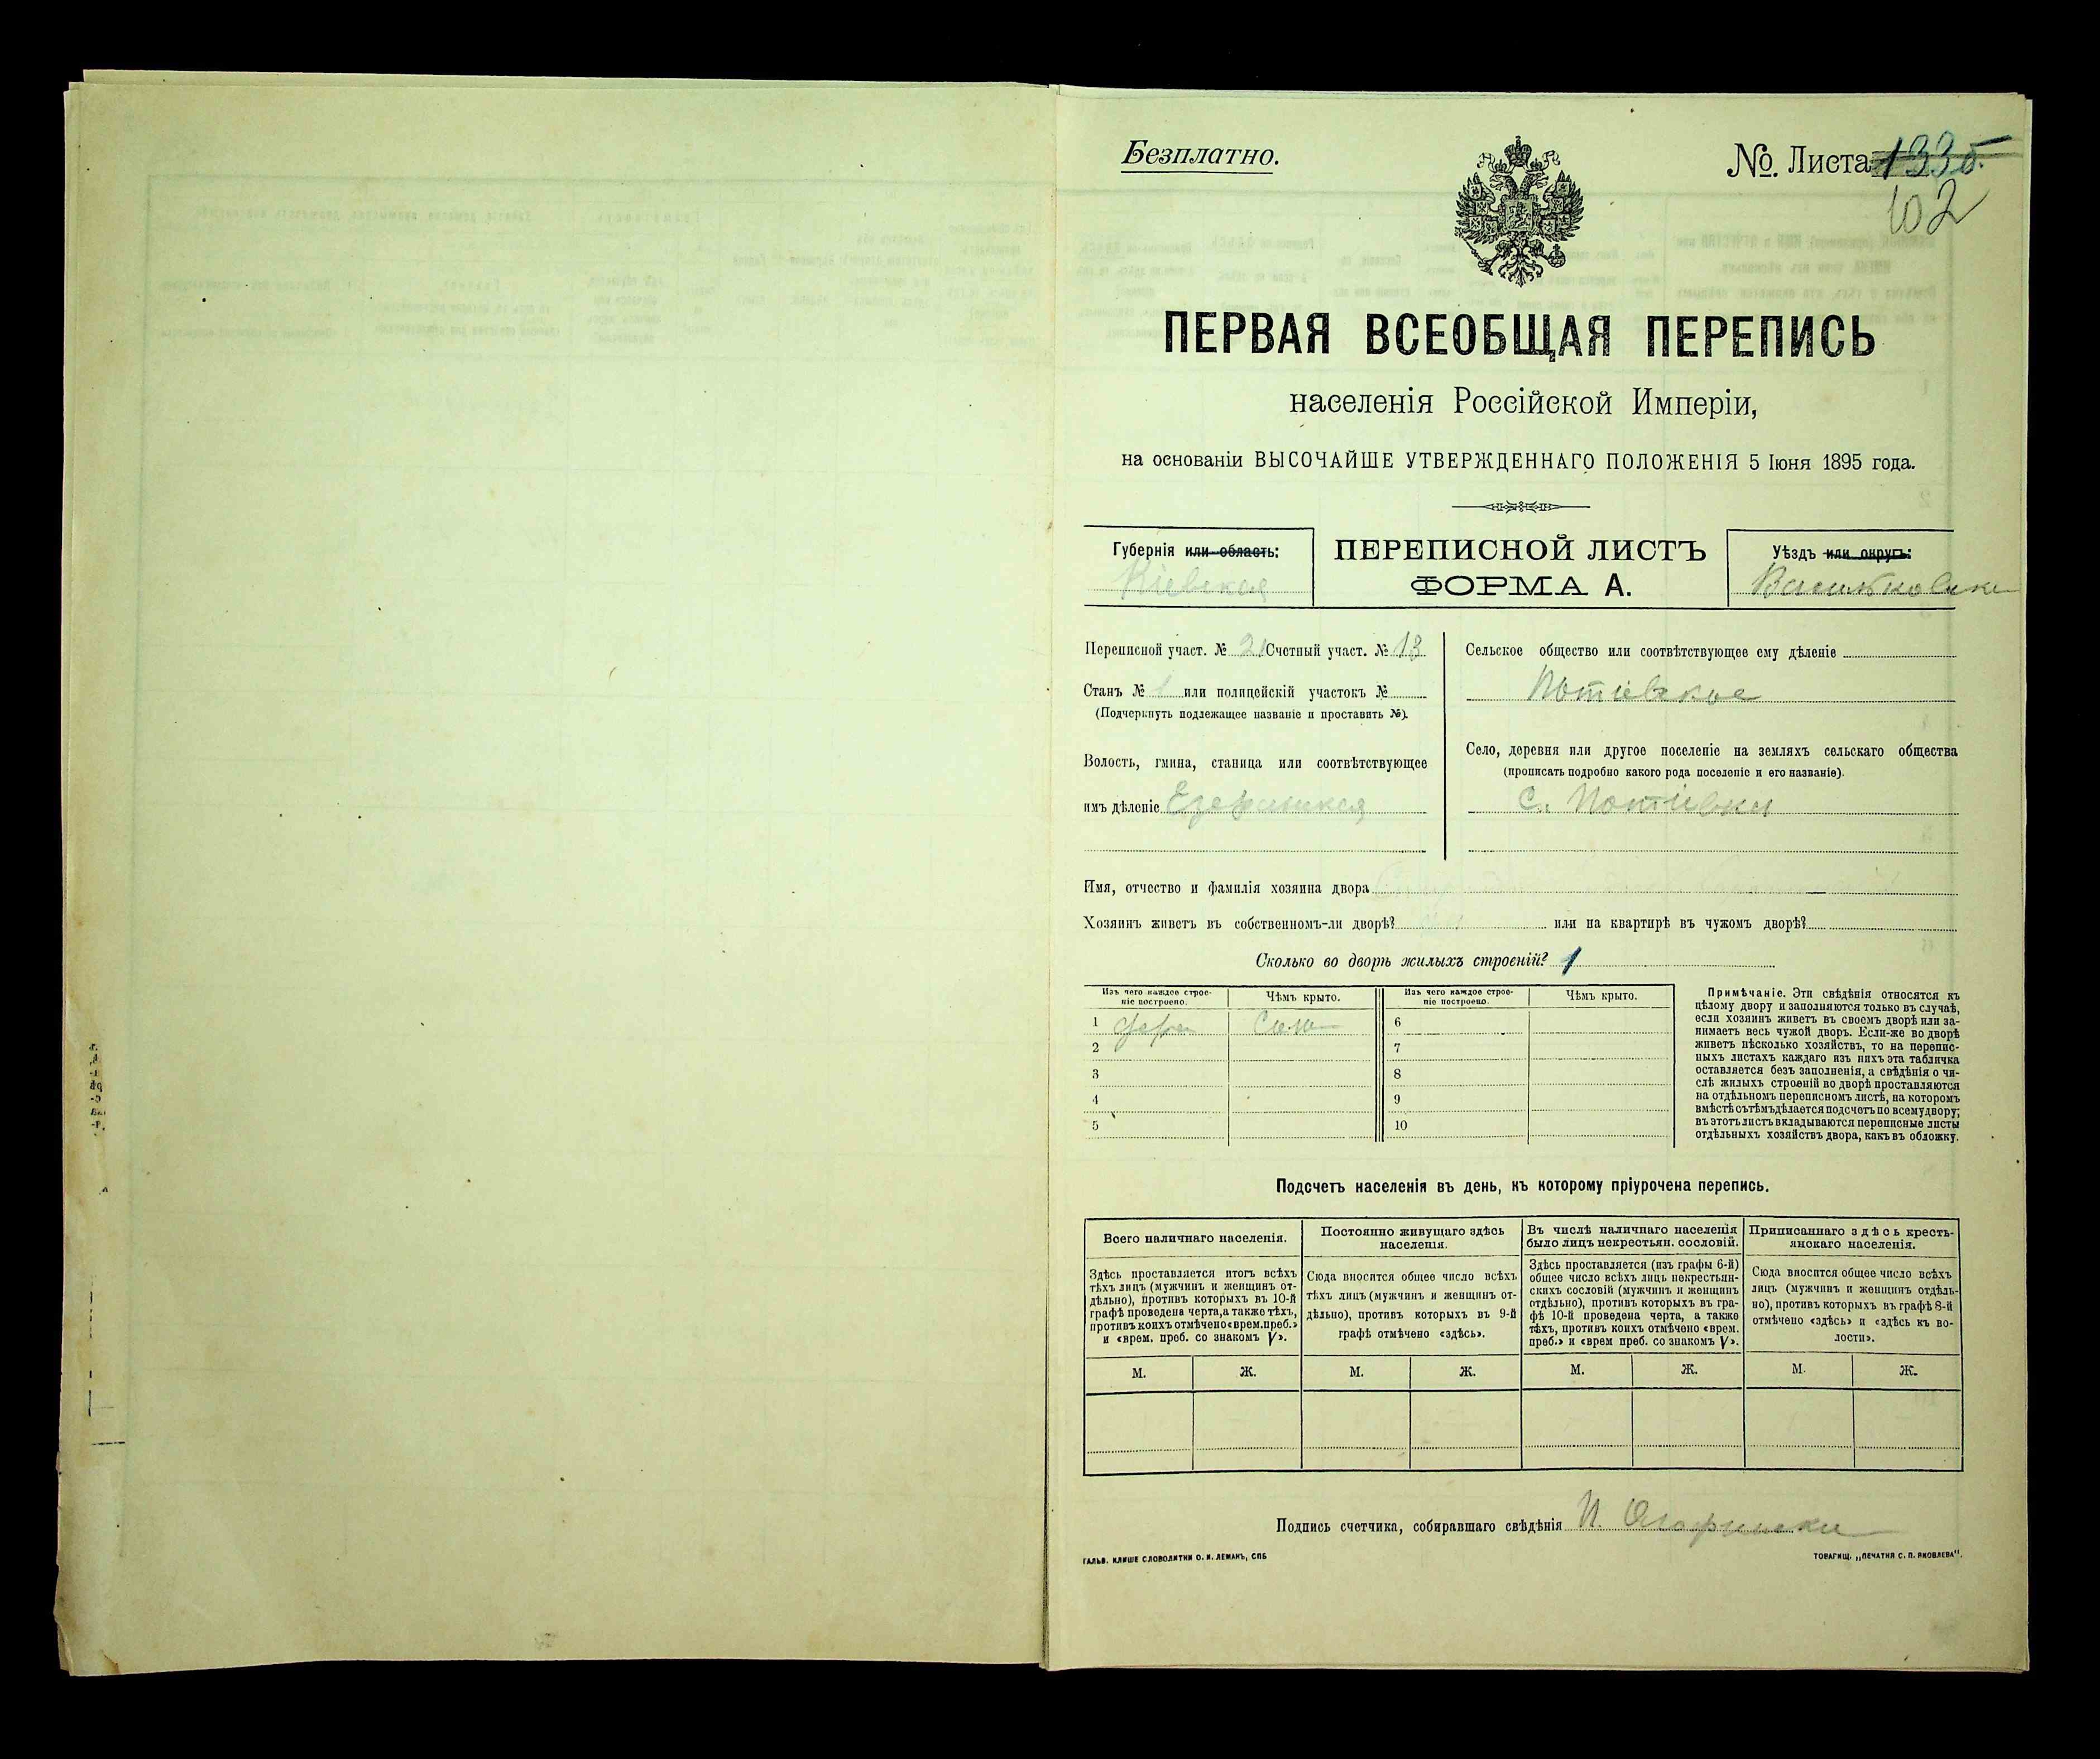 Безплатно.
№. Листа 133б.
102
ПЕРВАЯ ВСЕОБЩАЯ ПЕРЕПИСЬ
населенія Россійской Имперіи,
на основаніи ВЫСОЧАЙШЕ УТВЕРЖДЕННАГО ПОЛОЖЕНІЯ 5 Іюня 1895 года.
Губернія или область:
Кіевская
ПЕРЕПИСНОЙ ЛИСТЪ
ФОРМА А.
Уѣздъ или округъ:
Васильковски
Переписной участ. № 21 Счетный участ. № 13
Станъ № 1 или полицейскій участокъ №
(Подчеркнуть подлежащее названіе и проставить №).
Волость, гмина, станица или соотвѣтствующее
имъ дѣленіе Езерянская
Сельское общество или соотвѣтствующее ему дѣленіе
Потіевское
Село, деревня или другое поселеніе на земляхъ сельскаго общества
(прописать подробно какого рода поселеніе и его названіе).
С. Потіевка
Имя, отчество и фамилія хозяина двора
Хозяинъ живетъ въ собственномъ-ли дворѣ? или на квартирѣ въ чужомъ дворѣ?
Сколько во дворѣ жилыхъ строеній? 1
Изъ чего каждое строе-
ніе построено.
Чѣмъ крыто.
Изъ чего каждое строе-
ніе построено.
Чѣмъ крыто.
1 6
2 7
3 8
4 9
5 10
Примѣчаніе. Эти свѣдѣнія относятся къ
цѣлому двору и заполняются только въ случаѣ,
если хозяинъ живетъ въ своемъ дворѣ или за-
нимаетъ весь чужой дворъ. Если-же во дворѣ
живетъ нѣсколько хозяйствъ, то на перепис-
ныхъ листахъ каждаго изъ нихъ эта табличка
оставляется безъ заполненія, а свѣдѣнія о чи-
слѣ жилыхъ строеній во дворѣ проставляются
на отдѣльномъ переписномъ листѣ, на которомъ
вмѣстѣ съ тѣмъ дѣлается подсчетъ по всему двору;
въ этотъ листъ вкладываются переписные листы
отдѣльныхъ хозяйствъ двора, какъ въ обложку.
Подсчетъ населенія въ день, къ которому пріурочена перепись.
Всего наличнаго населенія.
Здѣсь проставляется итогъ всѣхъ
тѣхъ лицъ (мужчинъ и женщинъ от-
дѣльно), противъ которыхъ въ 10-й
графѣ проведена черта, а также тѣхъ,
противъ коихъ отмѣчено «врем. преб.»
и «врем. преб. со знакомъ V».
Постоянно живущаго здѣсь
населенія.
Сюда вносится общее число всѣхъ
тѣхъ лицъ (мужчинъ и женщинъ от-
дѣльно), противъ которыхъ въ 9-й
графѣ отмѣчено «здѣсь».
Въ числѣ наличнаго населенія
было лицъ некрестьян. сословій.
Здѣсь проставляется (изъ графы 6-й)
общее число всѣхъ лицъ некрестьян-
скихъ сословій (мужчинъ и женщинъ
отдѣльно), противъ которыхъ въ гра-
фѣ 10-й проведена черта, а также
тѣхъ, противъ коихъ отмѣчено «врем.
преб.» и «врем преб. со знакомъ V».
Приписаннаго здѣсь кресть-
янскаго населенія.
Сюда вносится общее число всѣхъ
лицъ (мужчинъ и женщинъ отдѣль-
но), противъ которыхъ въ графѣ 8-й
отмѣчено «здѣсь» и «здѣсь къ во-
лости».
М. Ж. М. Ж. М. Ж. М. Ж.
Подпись счетчика, собиравшаго свѣдѣнія
ГАЛЬВ. КЛИШЕ СЛОВОЛИТНИ О. И. ЛЕМАНЪ, СПБ
ТОВАРИЩ. „ПЕЧАТНЯ С. П. ЯКОВЛЕВА".